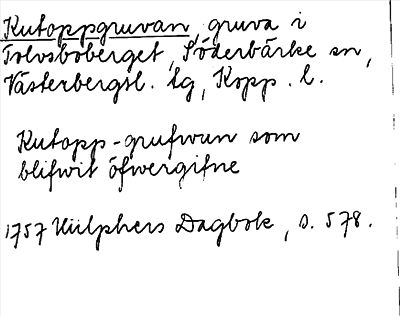 Kutoppgruvan, gruva i
Tolvsboberget, Söderbärke sn,
Västerbergsl. lg, Kopp. l.
Kutopp-grufwun som
blifwit öfwergifne
1757 Hülphers Dagbok, s. 578.